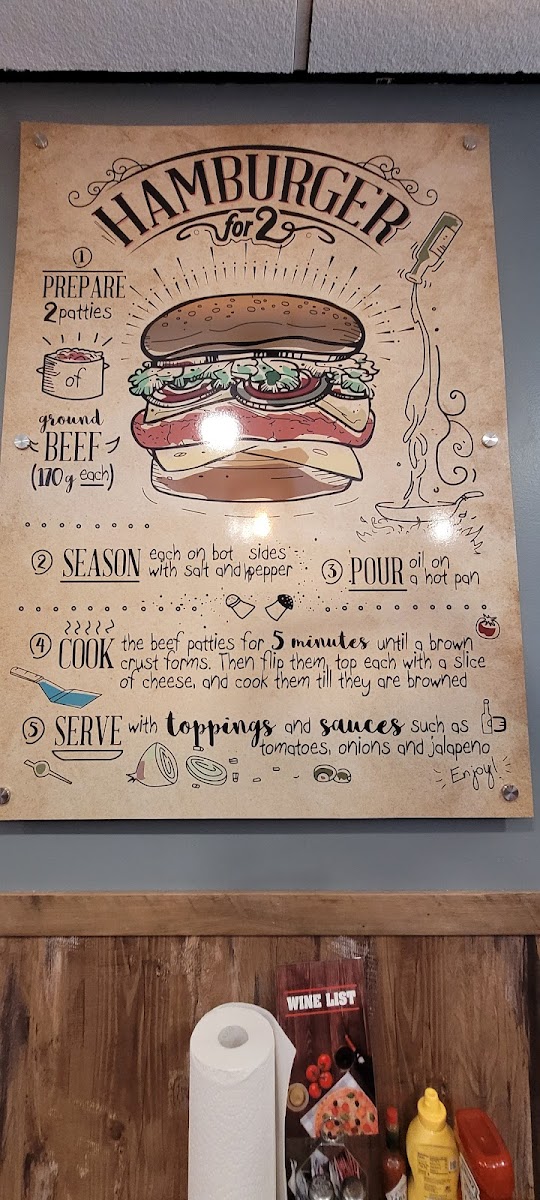 HAMBURGER
for 2
1
PREPARE
2 patties
of
ground
BEEF
(170g each)
2 SEASON each on bot sides
with salt and pepper
3 POUR oil on
a hot pan
4 COOK the beef patties for 5 minutes until a brown
crust forms. Then flip them, top each with a slice
of cheese, and cook them till they are browned
5 SERVE with toppings and sauces such as
tomatoes, onions and jalapeno
Enjoy!
WINE LIST